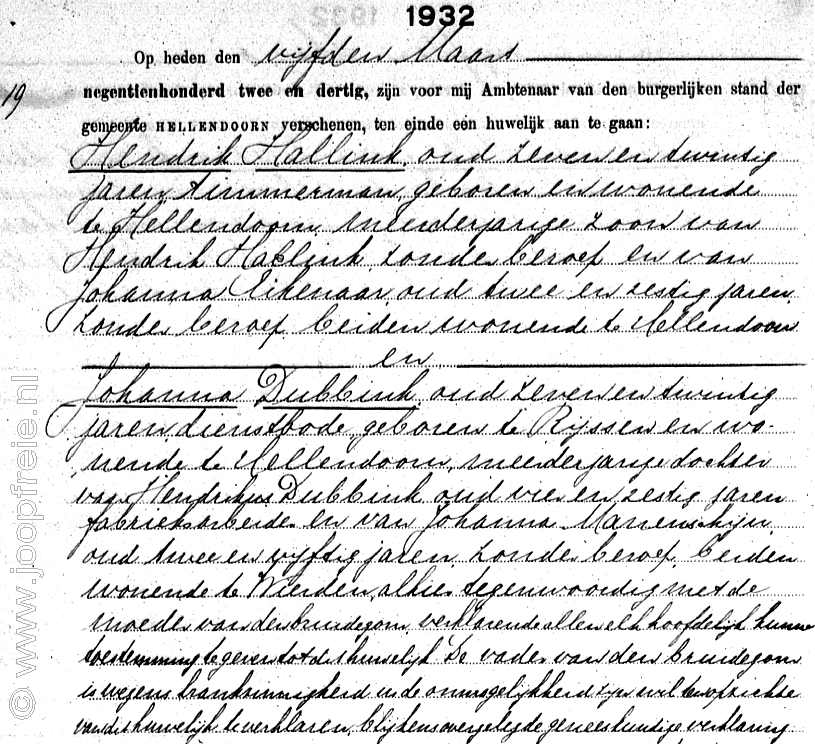 1932
Op heden den vijfden Maart
19
negentienhonderd twee en dertig, zijn voor mij Ambtenaar van den burgerlijken stand der
gemeente HELLENDOORN verschenen, ten einde een huwelijk aan te gaan:
Hendrik Hallink, oud zeven en twintig
jaren, timmerman, geboren en wonende
te Hellendoorn, meerderjarige zoon van
Hendrik Hallink, zonder beroep en van
Johanna Eikenaar oud twee en zestig jaren,
zonder beroep, beiden wonende te Hellendoorn
en
Johanna Dubbink, oud zeven en twintig
jaren dienstbode, geboren te Rijssen en wo-
nende te Hellendoorn, meerderjarige dochter
van Hendrikus Dubbink oud vier en zestig jaren
fabrieksarbeider en van Johanna
oud twee en vijftig jaren, zonder beroep, beiden
wonende te Wierden, alhier tegenwoordig met de
moeder van den bruidegom, verklarende allen elk hoofdelijk hunne
toestemming te geven tot dit huwelijk. De vader van den bruidegom
is wegens krankzinnigheid in de onmogelijkheid zijn wil ten opzichte
van dit huwelijk te verklaren, blijkens overgelegde geneeskundige verklaring.
© www.joopfreie.nl